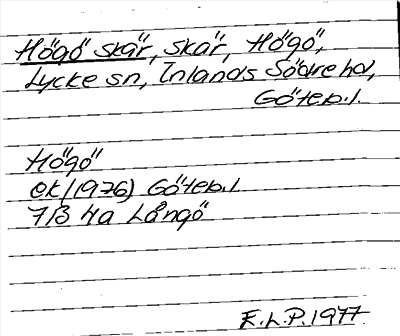 Högö skär, skär, Högö,
Lycke sn, Inlands Södre hd,
Göteb.l.
Högö
ek (1976) Göteb.l
7B 4a Långö
E.L.P. 1977